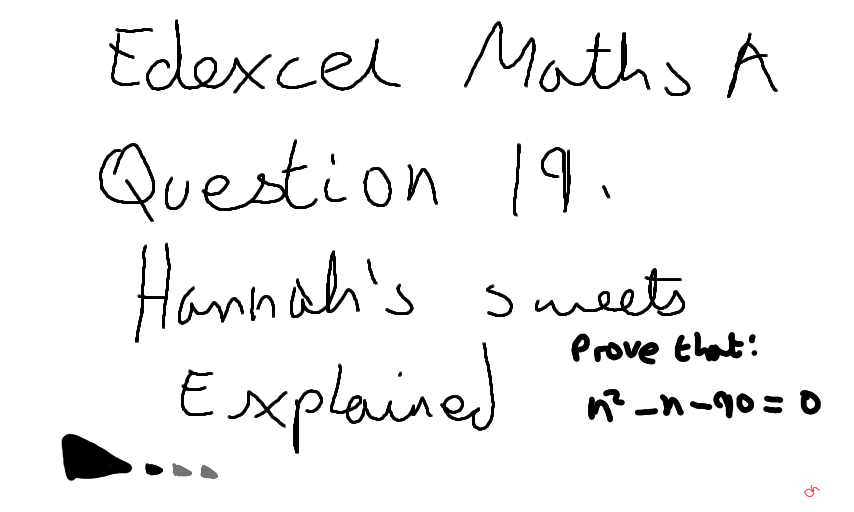 Edexcel Maths A
Question 19.
Hannah's sweets
Explained
Prove that:
n² - n - 90 = 0